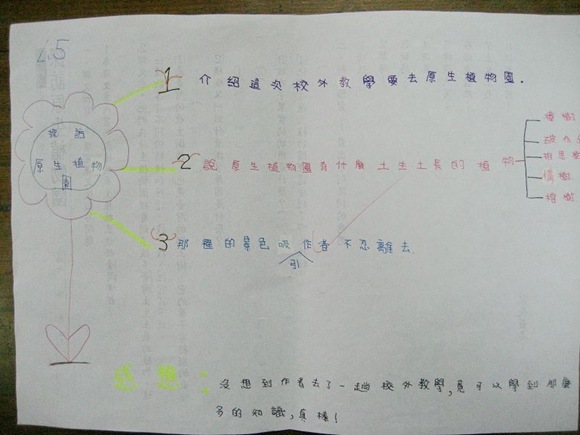 25
1 介紹這次校外教學要去原生植物園.
探訪
原生植物
園
2 說原生植物園有什麼土生土長的植物
樟樹
相思樹
構樹
3 那裡的景色吸引作者不忍離去
感想:
沒想到作者去了一趟校外教學,竟可以學到那麼
多的知識,真棒!